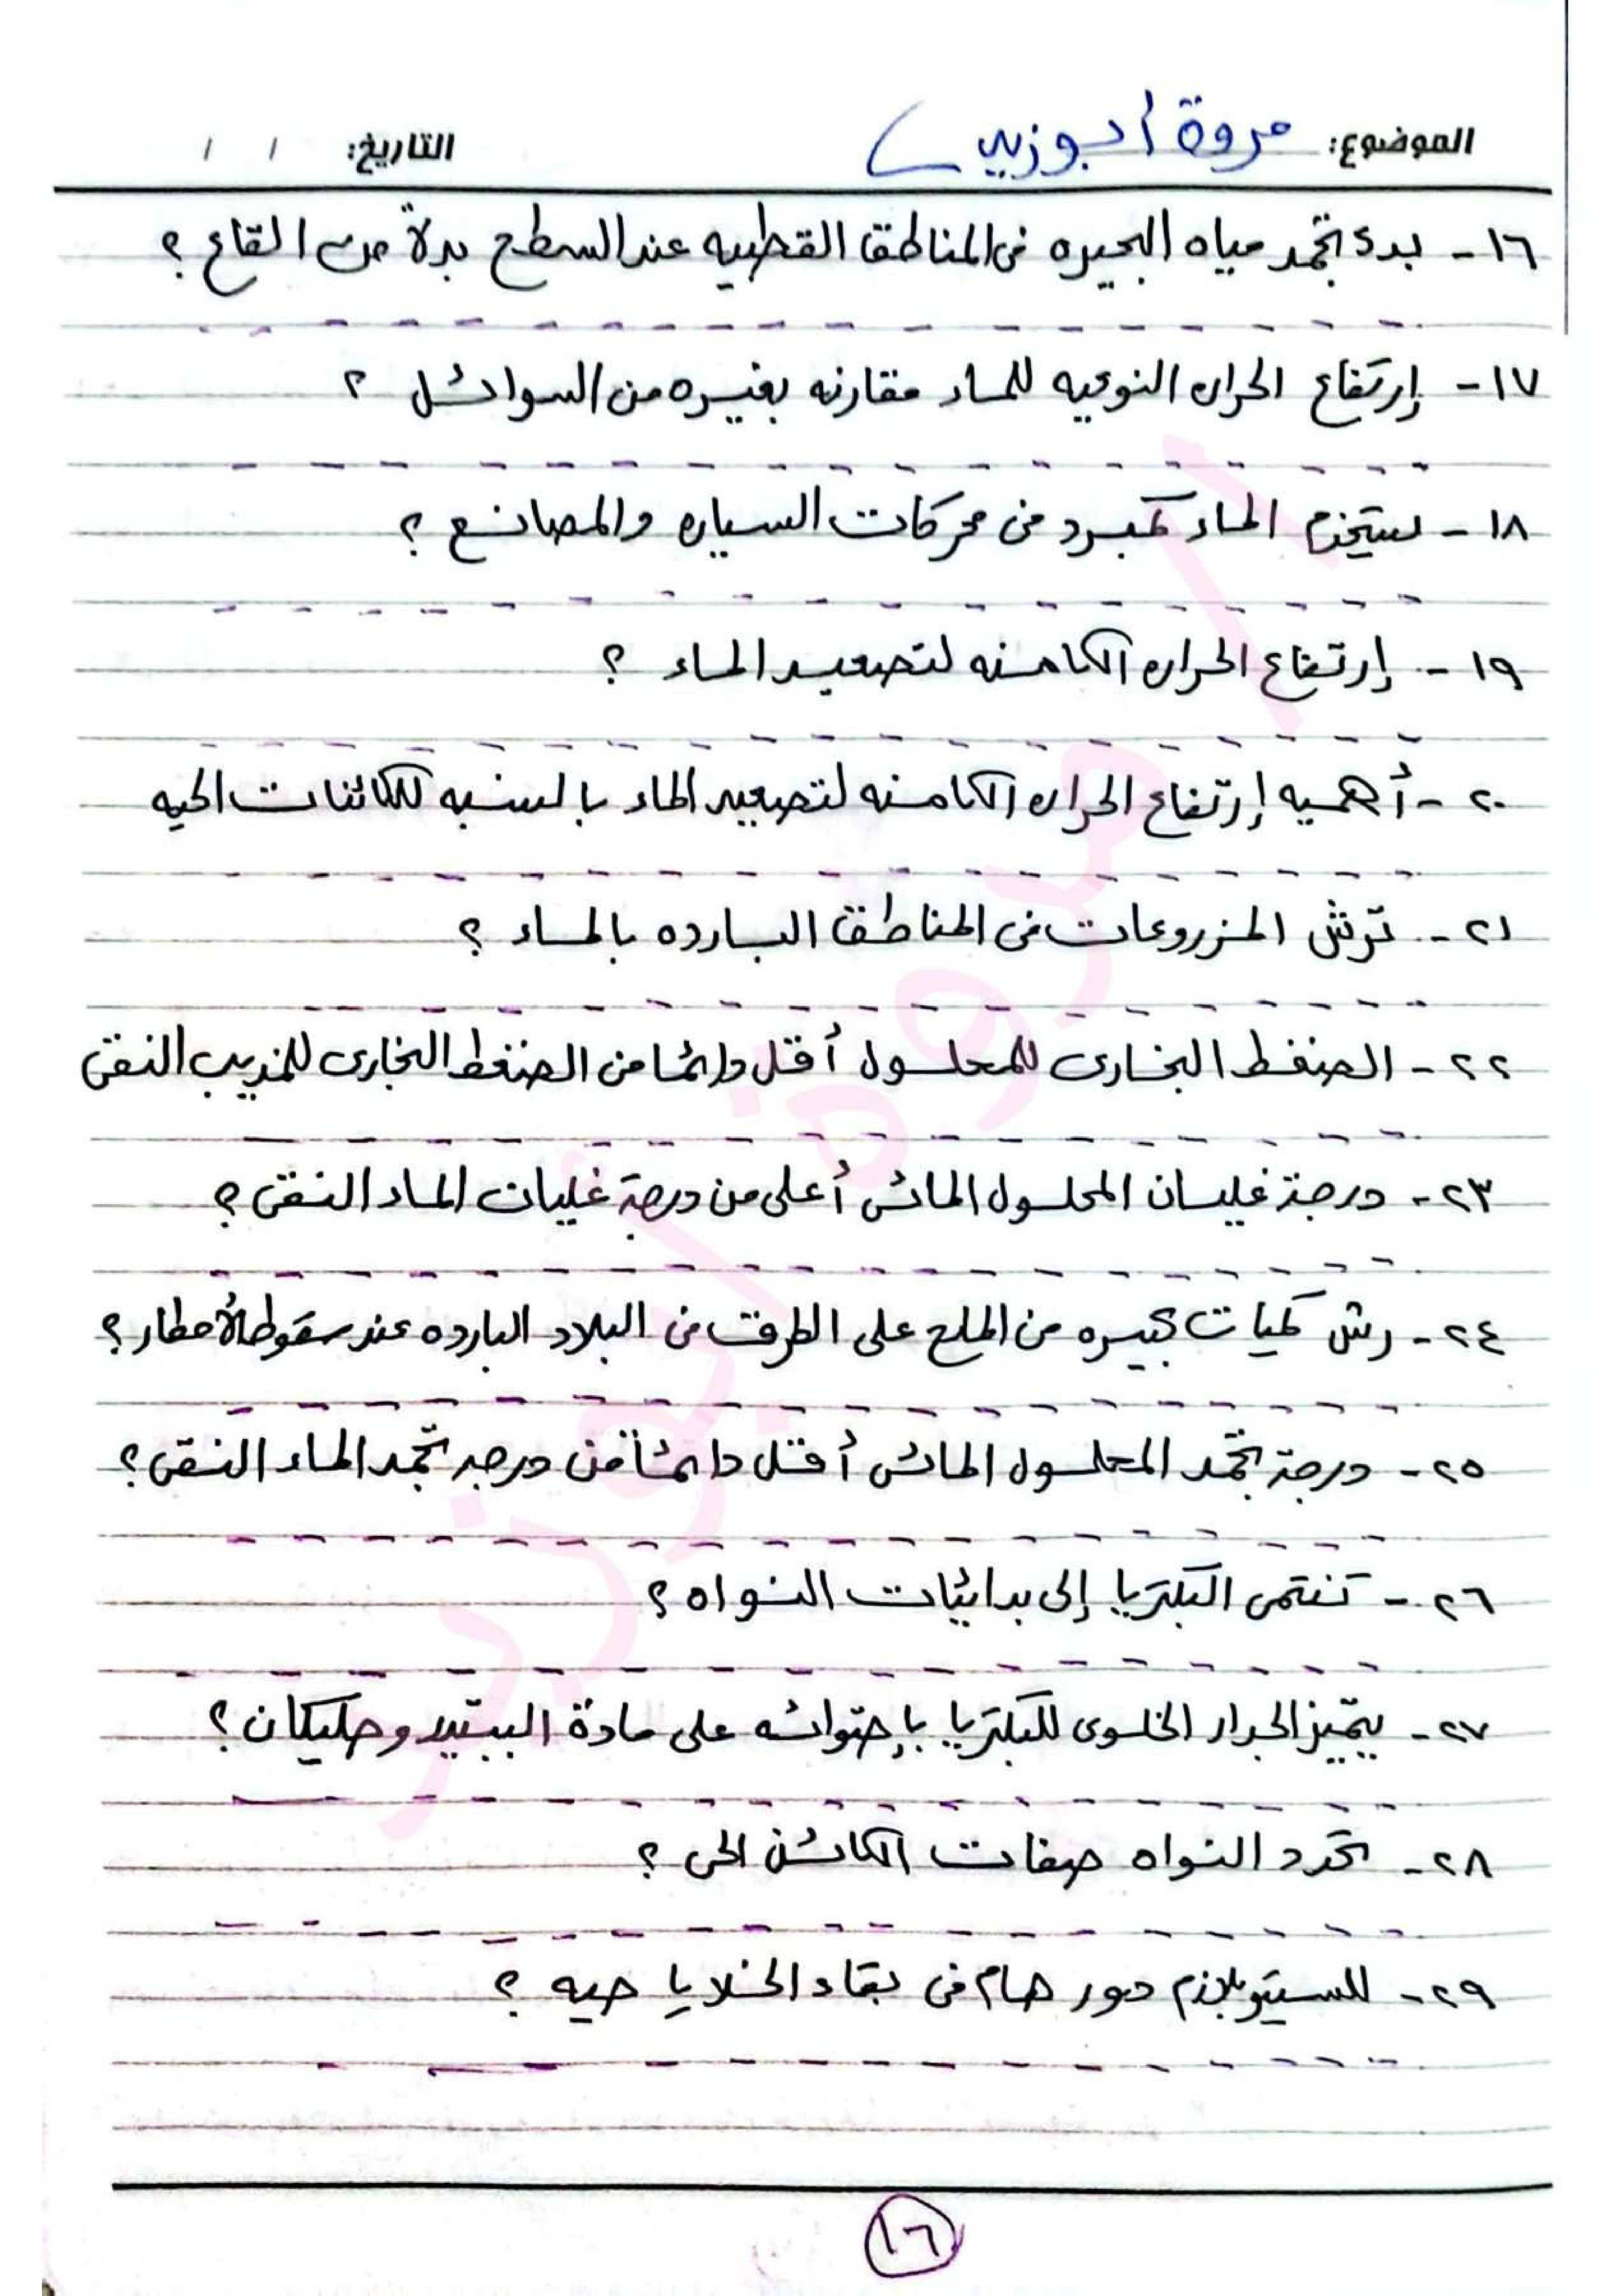 الموضوع: مروة أبوزيد التاريخ: / /
١٦- بدء تجمد مياه البحيره فى المناطق القطبيه عند السطح بدلاً من القاع ؟
١٧- إرتفاع الحراره النوعيه للماء مقارنه بغيره من السوائل ؟
١٨- يستخدم الماء كمبرد فى محركات السياره والمصانع ؟
١٩- إرتفاع الحراره الكامنه لتصعيد الماء ؟
٢٠- أهميه إرتفاع الحراره الكامنه لتصعيد الماء بالنسبه للكائنات الحيه
٢١- ترش المزروعات فى المناطق البارده بالماء ؟
٢٢- الضغط البخارى للمحلول أقل دائما من الضغط البخارى للمذيب النقى
٢٣- درجة غليان المحلول المائى أعلى من درجة غليان الماء النقى ؟
٢٤- رش كميات كبيره من الملح على الطرق فى البلاد البارده عند سقوط الأمطار ؟
٢٥- درجة تجمد المحلول المائى أقل دائماً من درجه تجمد الماء النقى ؟
٢٦- تنتمى البكتريا إلى بدائيات النواه ؟
٢٧- يتميز الجدار الخلوى للبكتريا بإحتوائه على مادة الببتيدوجليكان ؟
٢٨- تحدد النواه صفات الكائن الحى ؟
٢٩- للسيتوبلازم دور هام فى بقاء الخلايا حيه ؟
١٦
مروة أبوزيد